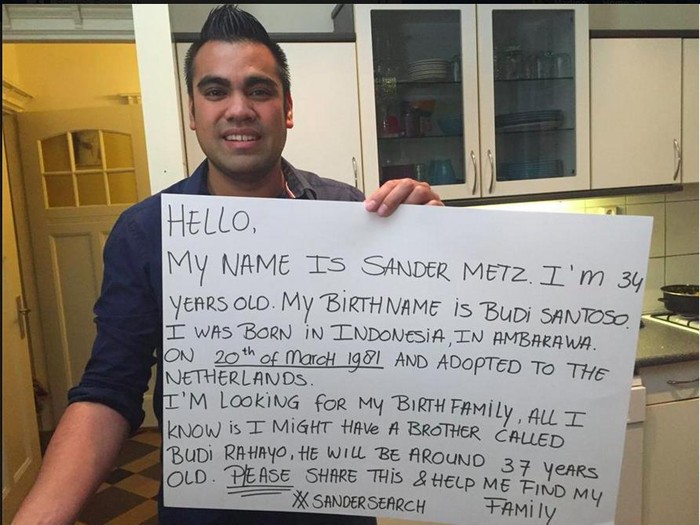 HELLO,
MY NAME IS SANDER METZ. I'm 34
YEARS OLD. MY BIRTHNAME is BUDI SANTOSO.
I WAS BORN in INDONESIA, IN AMBARAWA.
ON 20th of March 1981 AND ADOPTED TO THE
NETHERLANDS.
I'M LOOKING for MY BIRTH FAMILY, ALL I
KNOW is I MIGHT HAVE A BROTHER CALLED
BUDI RAHAYO, HE WILL BE AROUND 37 YEARS
OLD. PLEASE SHARE THIS & HELP ME FIND MY
FAMILY
#SANDERSEARCH